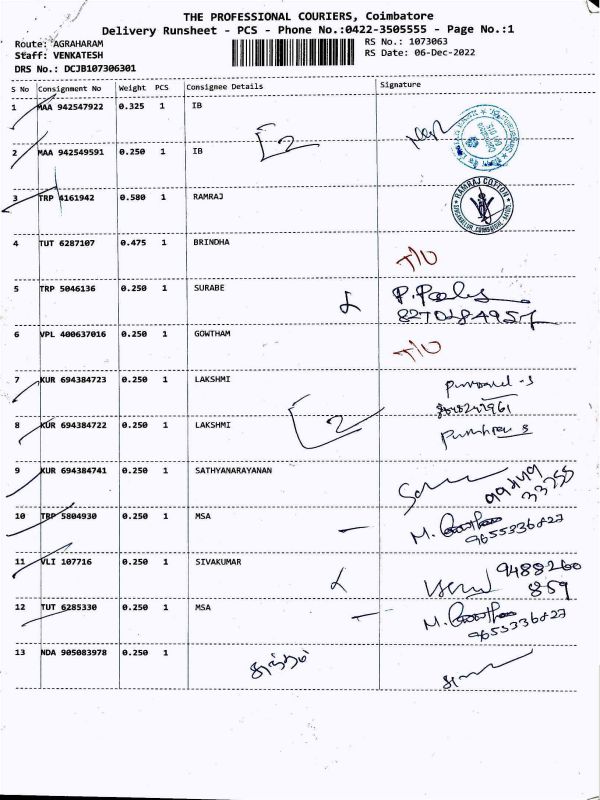 THE PROFESSIONAL COURIERS, Coimbatore
Delivery Runsheet - PCS - Phone No.:0422-3505555 - Page No.:1
Route: AGRAHARAM RS No.: 1073063
Staff: VENKATESH RS Date: 06-Dec-2022
DRS No.: DCJB107306301
S No Consignment No Weight PCS Consignee Details Signature
1 MAA 942547922 0.325 1 IB
2
2 MAA 942549591 0.250 1 IB
3 TRP 4161942 0.580 1 RAMRAJ
RAMRAJ COTTON
4 TUT 6287107 0.475 1 BRINDHA
T/U
5 TRP 5046136 0.250 1 SURABE
6 VPL 400637016 0.250 1 GOWTHAM
T/U
7 KUR 694384723 0.250 1 LAKSHMI
2
8 KUR 694384722 0.250 1 LAKSHMI
9 KUR 694384741 0.250 1 SATHYANARAYANAN
99449
33255
10 TRP 5804930 0.250 1 MSA
M.
9655336827
11 VLI 107716 0.250 1 SIVAKUMAR
9488260
859
12 TUT 6285330 0.250 1 MSA
M.
9655336827
13 NDA 905083978 0.250 1